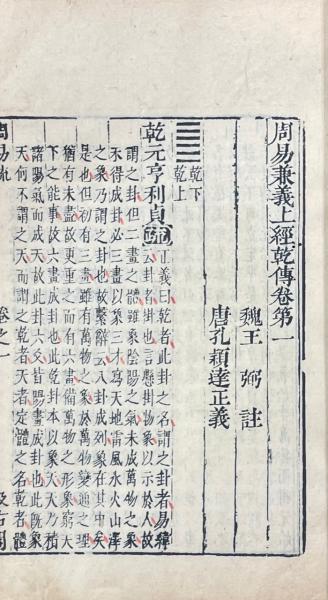 周易兼義上經乾傳卷第一
魏王弼註
唐孔穎達正義
乾下
乾上
乾元亨利貞疏正義曰乾者此卦之名謂之卦者易緯
云卦者掛也言懸掛物象以示於人故
謂之卦但二畫之體雖象陰陽之氣未成萬物之象
未得成卦必三畫以象三才寫天地雷風水火山澤
之象乃謂之卦也故繫辭云八卦成列象在其中矣
是也但初有三畫雖有萬物之象於萬物變通之理
猶有未盡故更重之而有六畫備萬物之形象窮天
下之能事故六畫成卦也此乾卦本以象天天乃積
諸陽氣而成天故此卦六爻皆陽畫成卦也此既象
天何不謂之天而謂之乾者天者定體之名乾者體
卷之一